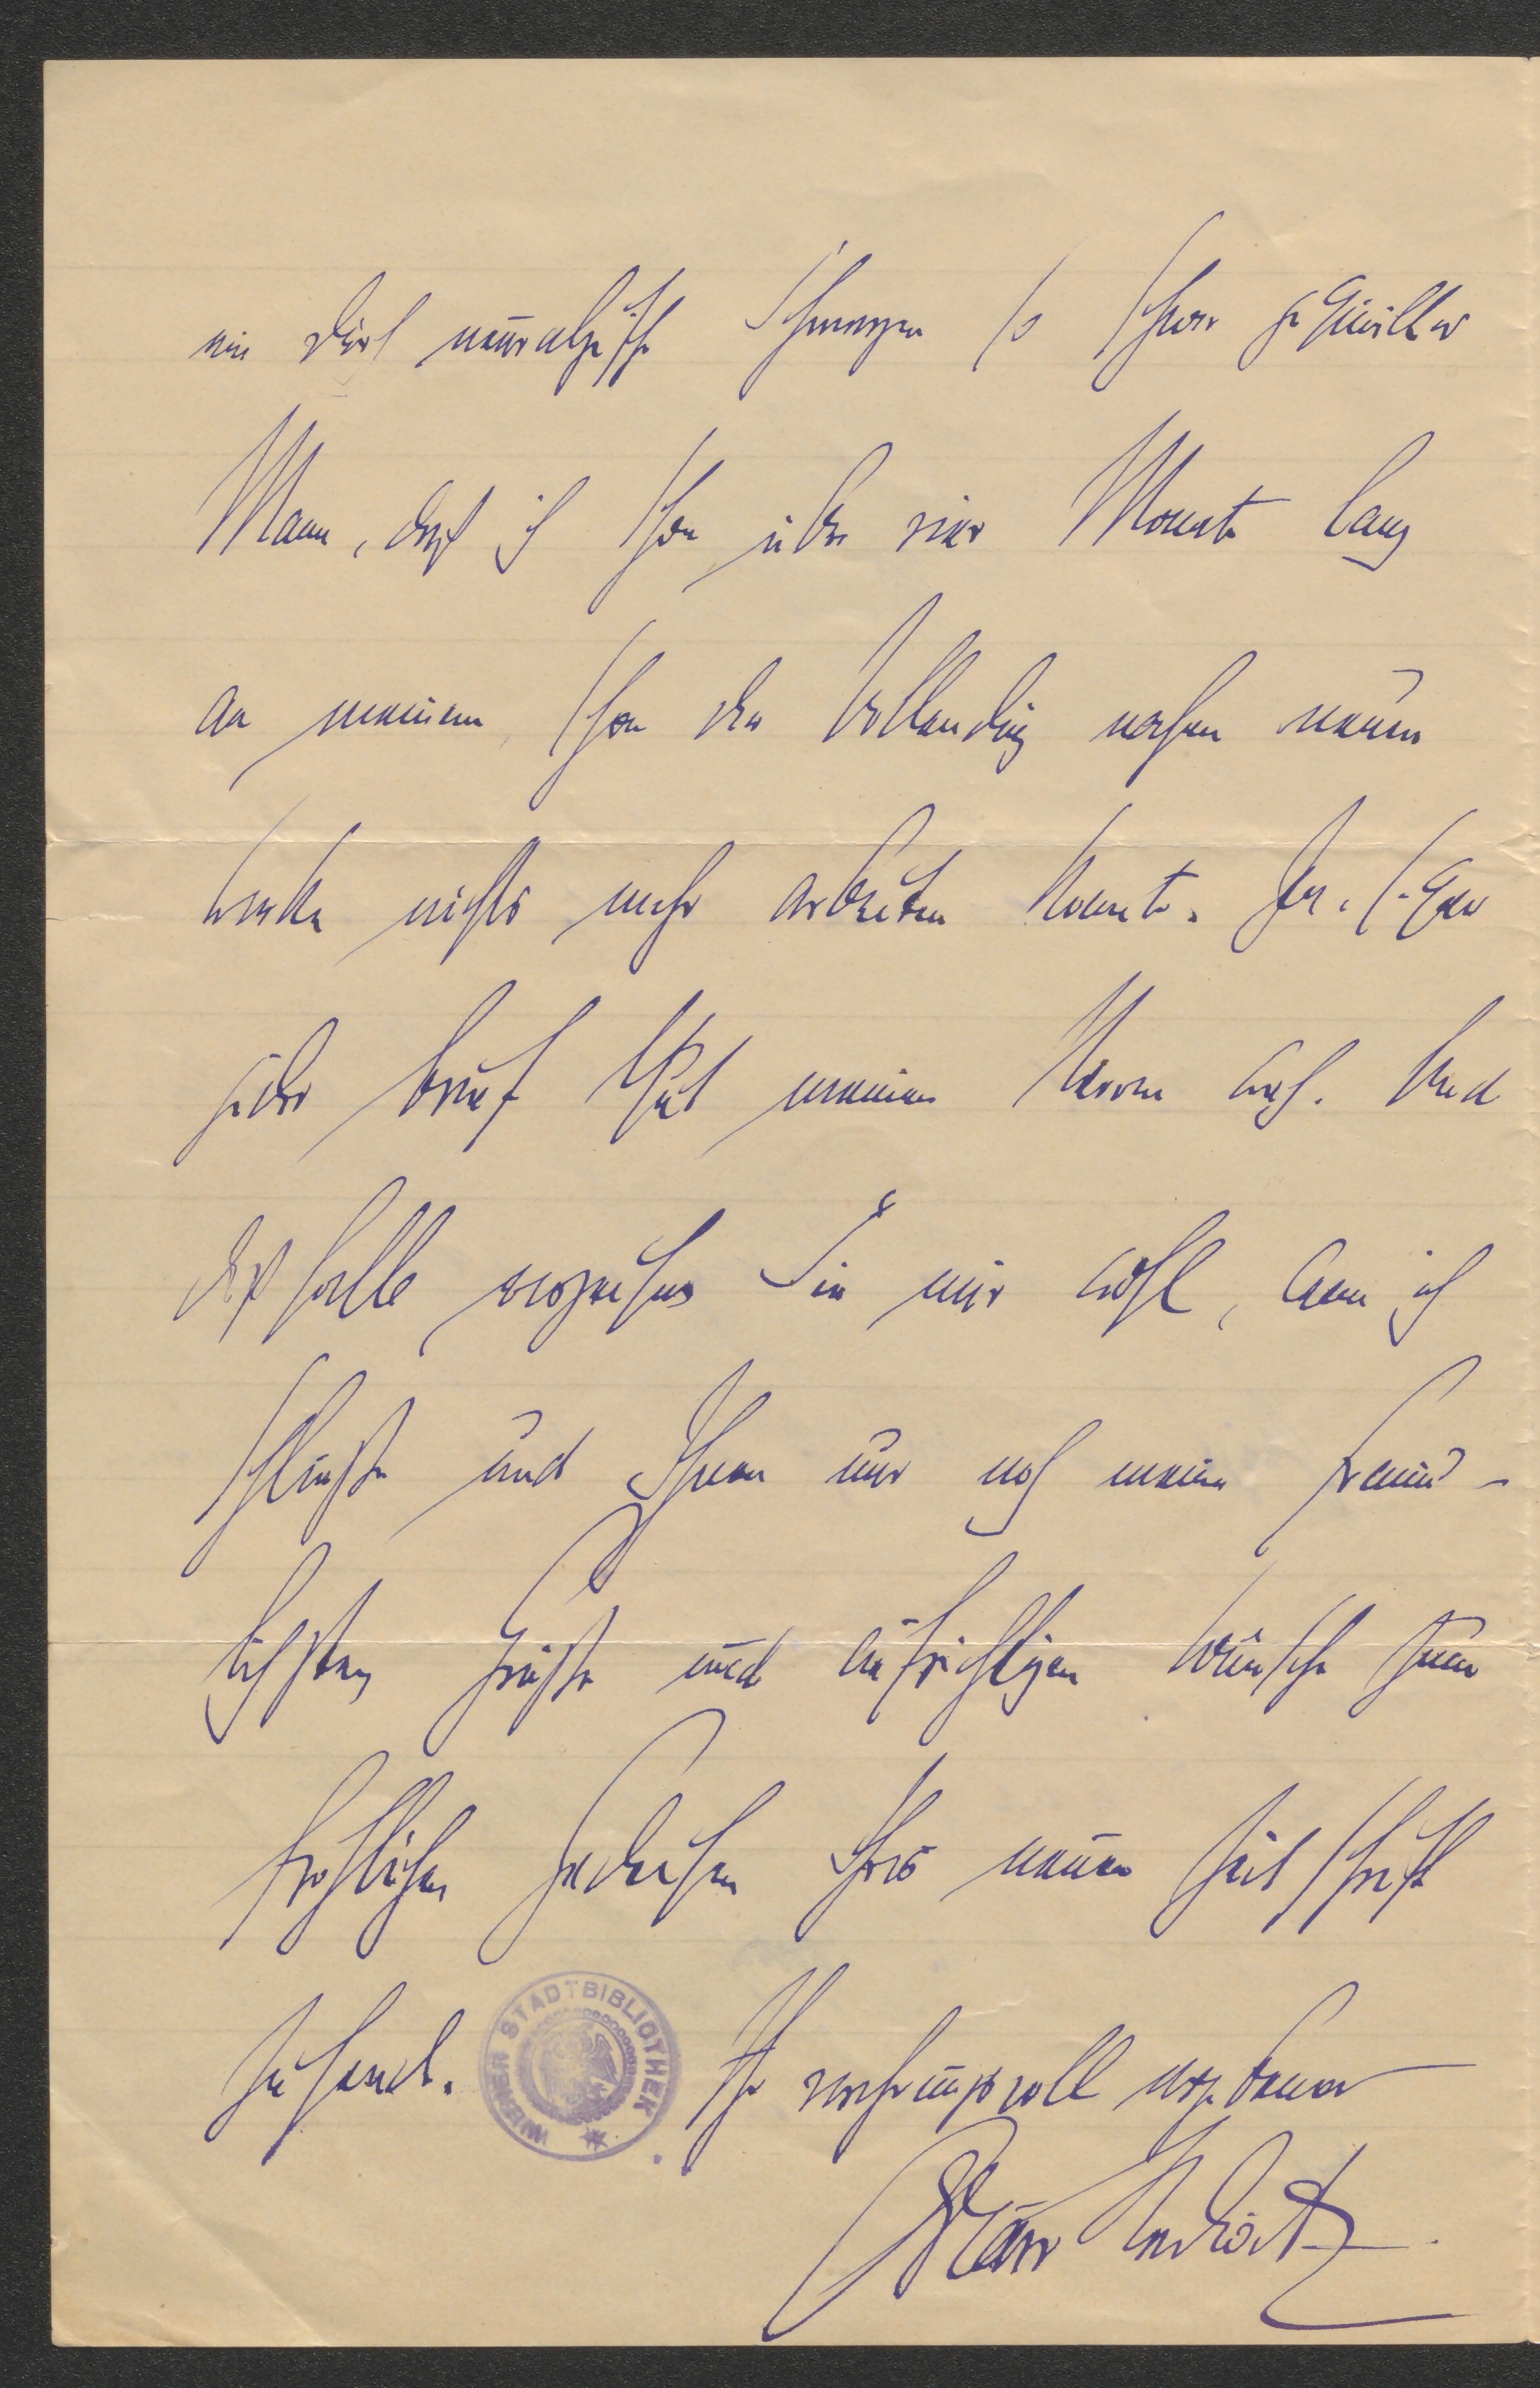 ein durch neuralgische Schmerzen so schwer gequälter
Mann, daß ich schon über vier Monate lang
an meinem, schon der Vollendung nahen neuen
Werke nichts mehr arbeiten konnte. Ja,
jeder Brief thut meinen Nerven weh. Und
deßhalb verzeihen Sie mir wohl, wenn ich
schließe und Ihnen nur noch meine freund-
lichsten Grüße und aufrichtigen Wünsche zum
fröhlichen Gedeihen Ihrer neuen Zeitschrift
zusende.
WIENER STADTBIBLIOTHEK
Ihr verehrungsvoll ergebener